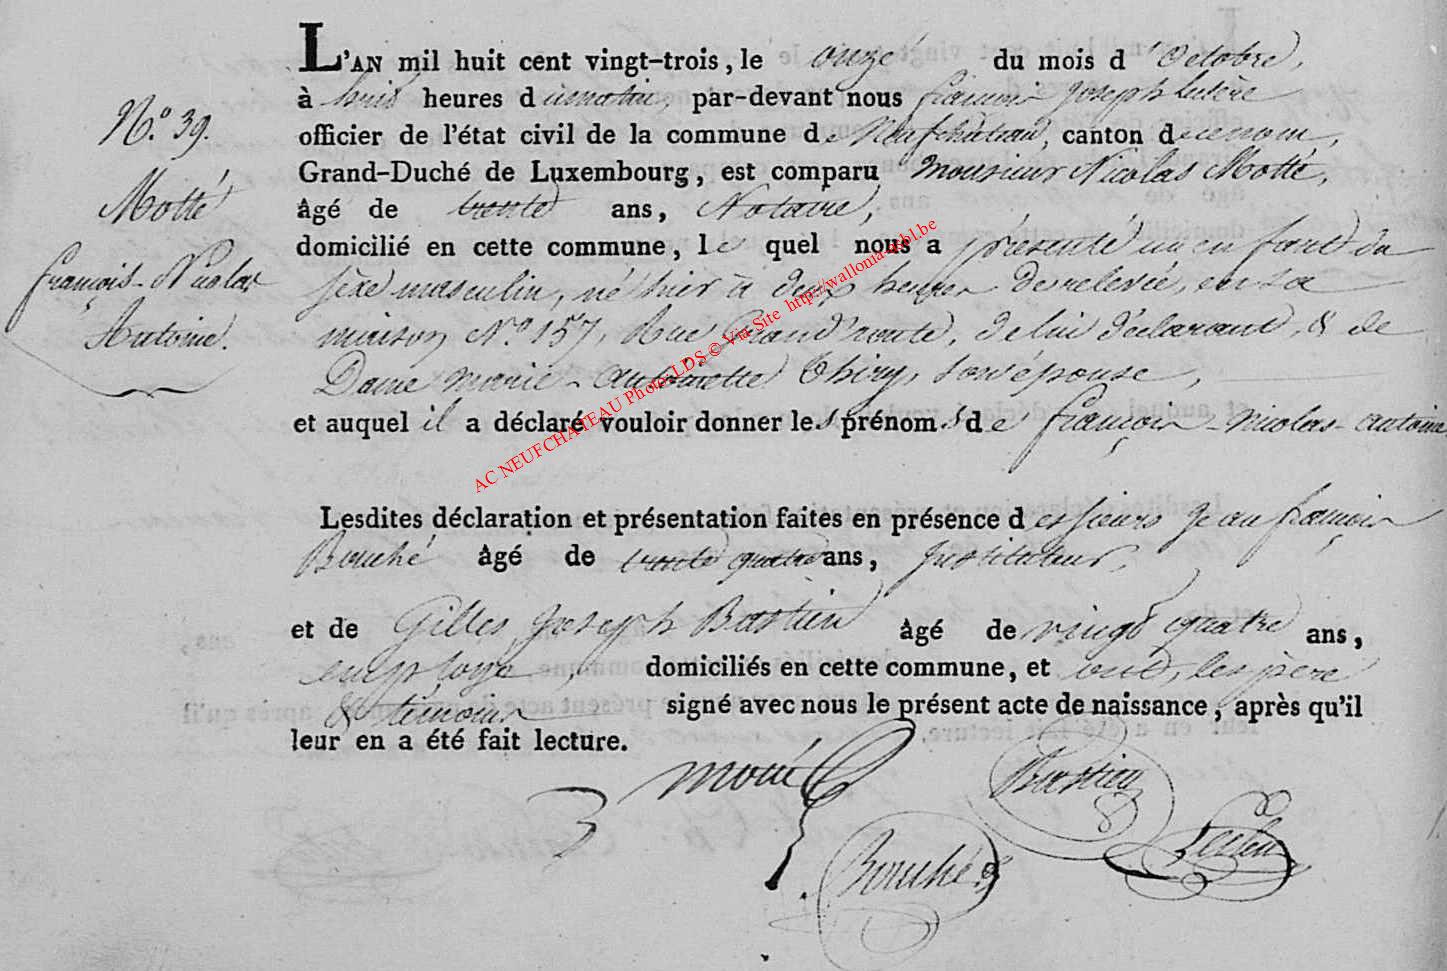 N.º 39.
Motté
françois-Nicolas
Antoine.
L'AN mil huit cent vingt-trois, le onze du mois d'Octobre,
à huit heures du matin, par-devant nous françois Joseph
officier de l'état civil de la commune de Neufchateau, canton de ce nom,
Grand-Duché de Luxembourg, est comparu Monsieur Nicolas Motté,
âgé de trente ans, Notaire,
domicilié en cette commune, le quel nous a présenté un enfant du
sèxe masculin, né hier à deux heures de relevée, en sa
maison N.º 157, Rue Grand'route, de lui déclarant, & de
Dame marie-antoinette Thiry, son épouse,
et auquel il a déclaré vouloir donner les prénoms de françois-nicolas-antoine
Lesdites déclaration et présentation faites en présence des sieurs Jean françois
Bouché âgé de trente quatre ans, Instituteur,
et de Gilles Joseph Bastien âgé de vingt quatre ans,
employé, domiciliés en cette commune, et ont, les père
& témoins signé avec nous le présent acte de naissance, après qu'il
leur en a été fait lecture.
Motté
Bastien
Bouché
AC NEUFCHATEAU Photo LDS © Via Site http://wallonia-asbl.be